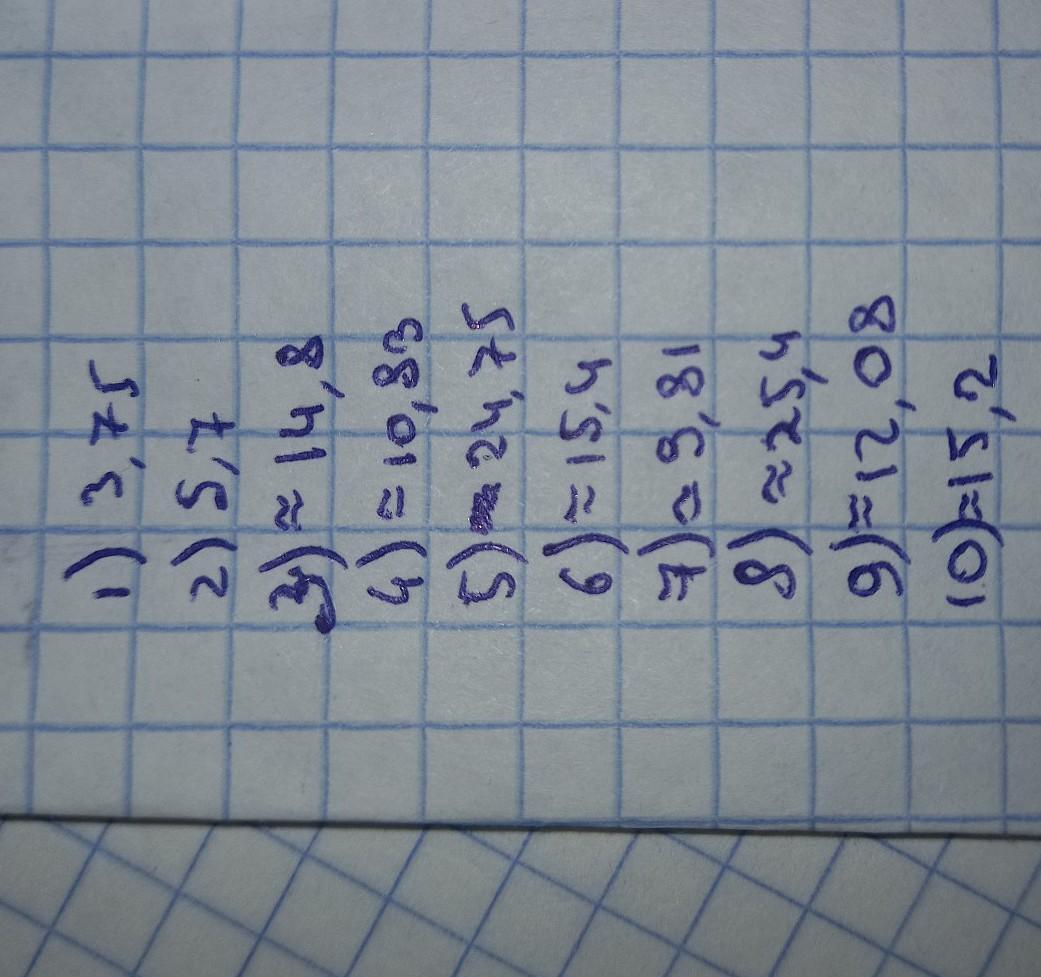 1) 3,75
2) 5,7
3) ≈ 14,8
4) = 10,83
5) 24,75
6) ≈ 15,4
7) 9,81
8) ≈ 25,4
9) = 12,08
10) ≈ 15,2